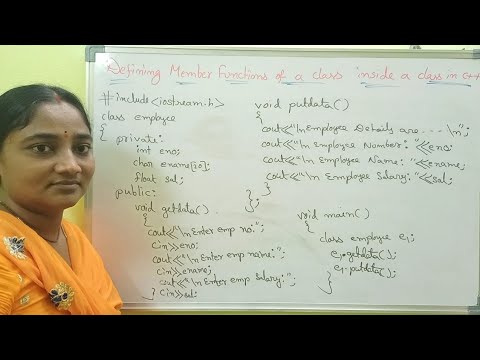 Defining Member Functions of a class inside a class in C++
#include<iostream.h>
class employee
{
private:
int eno;
char ename[20];
float sal;
public:
void getdata()
{
cout<<"\nEnter emp no:";
cin>>eno;
cout<<"\nEnter emp name:";
cin>>ename;
cout<<"\nEnter emp Salary:";
} cin>>sal;
void putdata()
{
cout<<"\nEmployee Details are....\n";
cout<<"\nEmployee Number:"<<eno;
cout<<"\nEmployee Name:"<<ename;
cout<<"\nEmployee Salary:"<<sal;
}
};
void main()
{
class employee e1;
e1.getdata();
e1.putdata();
}